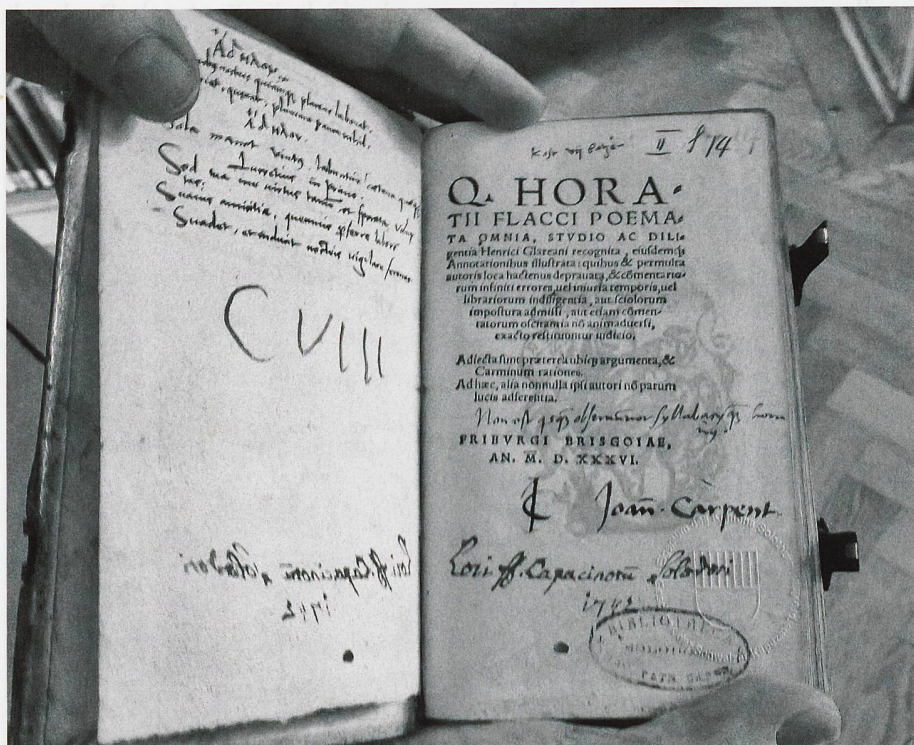 Ἄδηλον.
placere laborat,
placuisse
Ἄδηλον.
Sola manet virtus
Lucretius in primo.
Sed tua me virtus tamen et sperata volup
tas,
Suavis amicitiæ, quemvis perferre laborem
Suadet, et inducit noctes vigilare serenas
CVIII
II 14
Q. HORA-
TII FLACCI POEMA-
TA OMNIA, STVDIO AC DILI-
gentia Henrici Glareani recognita, eiusdemq́;
Annotationibus illustrata: quibus & permulta
autoris loca hactenus deprauata, & cōmentario-
rum infiniti errores, uel iniuria temporis, uel
librariorum indiligentia, aut sciolorum
impostura admissi, aut etiam cōmen-
tatorum oscitantia nō animaduersi,
exacto restituuntur iudicio.
Adiecta sunt præterea ubiq; argumenta, &
Carminum rationes.
Ad hæc, alia nonnulla ipsi autori nō parum
lucis adferentia.
Non est
FRIBVRGI BRISGOIAE,
AN. M. D. XXXVI.
Joañ. Carpent
Loci ff. Capucinorū Solodori
1742
BIBLIOTHECA